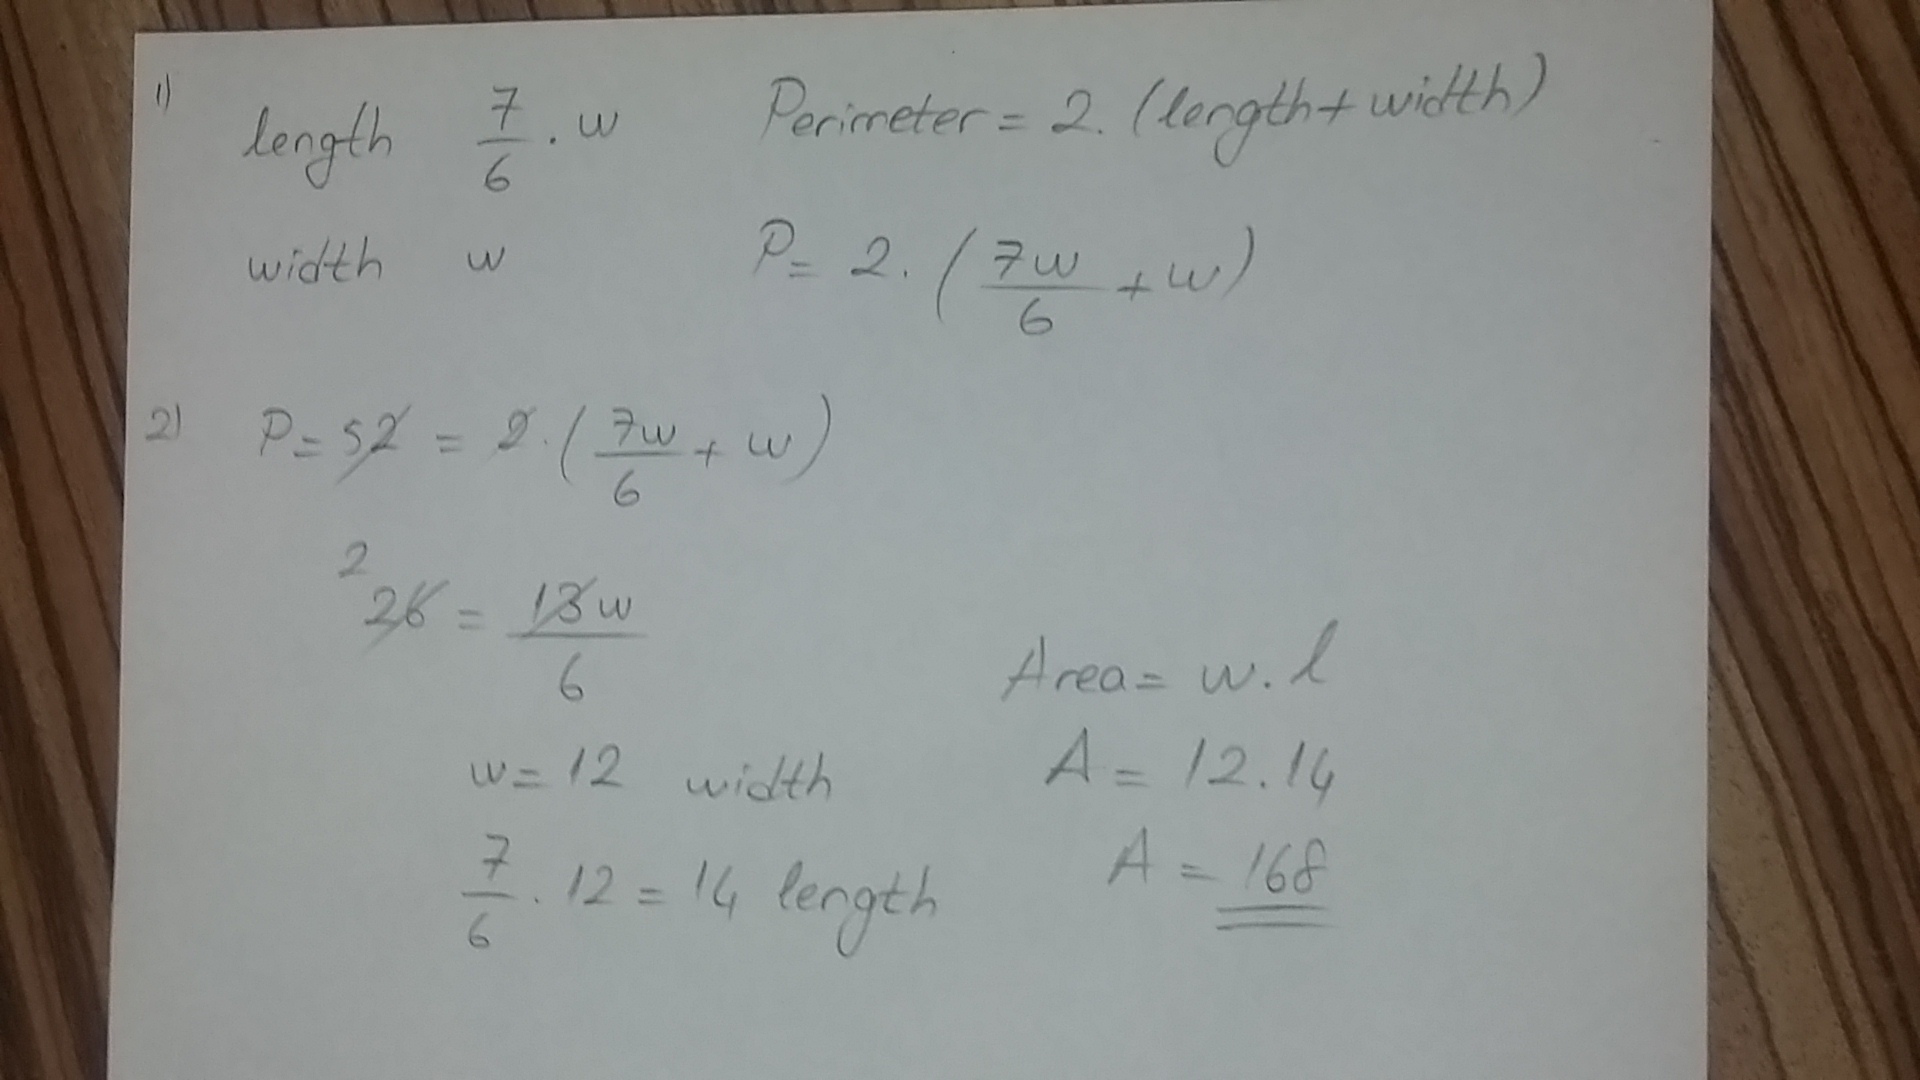 1)
length 7/6 . w
width w
Perimeter = 2. (length + width)
P = 2. (7w/6 + w)
2) P = 52 = 2. (7w/6 + w)
2
26 = 13w/6
w = 12 width
7/6 . 12 = 14 length
Area = w. l
A = 12.14
A = 168